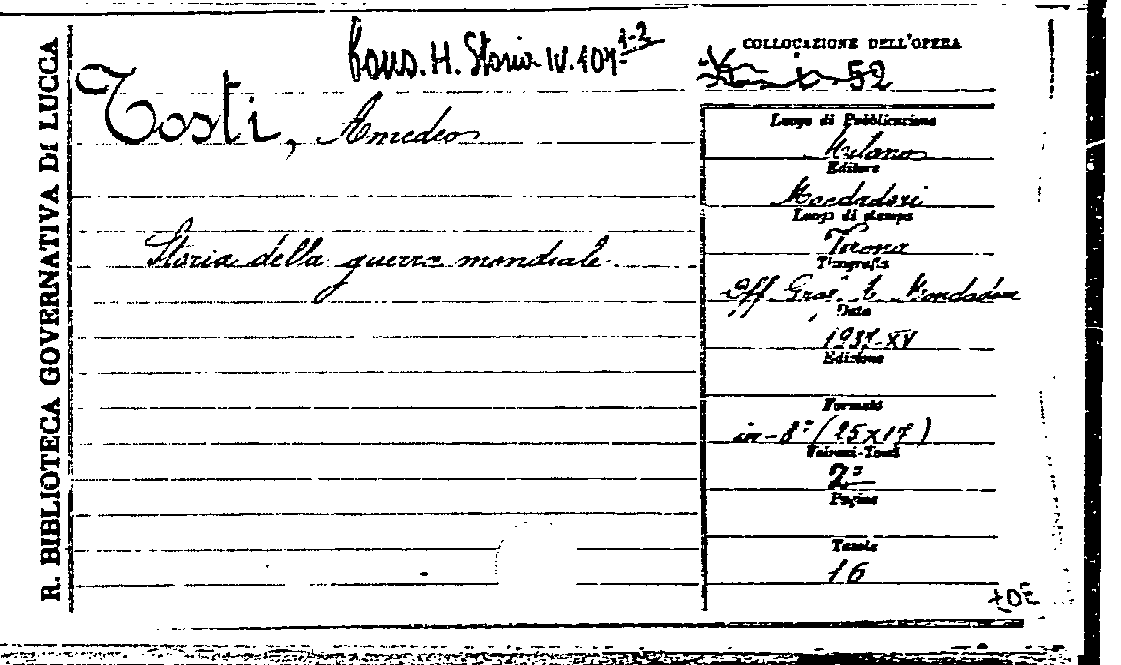 R. BIBLIOTECA GOVERNATIVA DI LUCCA
Cons. H. Storia IV. 107 1-2
COLLOCAZIONE DELL'OPERA
52
Tosti, Amedeo
Storia della guerra mondiale.
Luogo di Pubblicazione
Milano
Editore
Mondadori
Luogo di stampa
Verona
Tipografia
Off. Graf. A. Mondadori
Data
1937-XV
Edizione
Formato
in-8° (25x17)
Volumi-Tomi
2
Pagine
Tavole
16